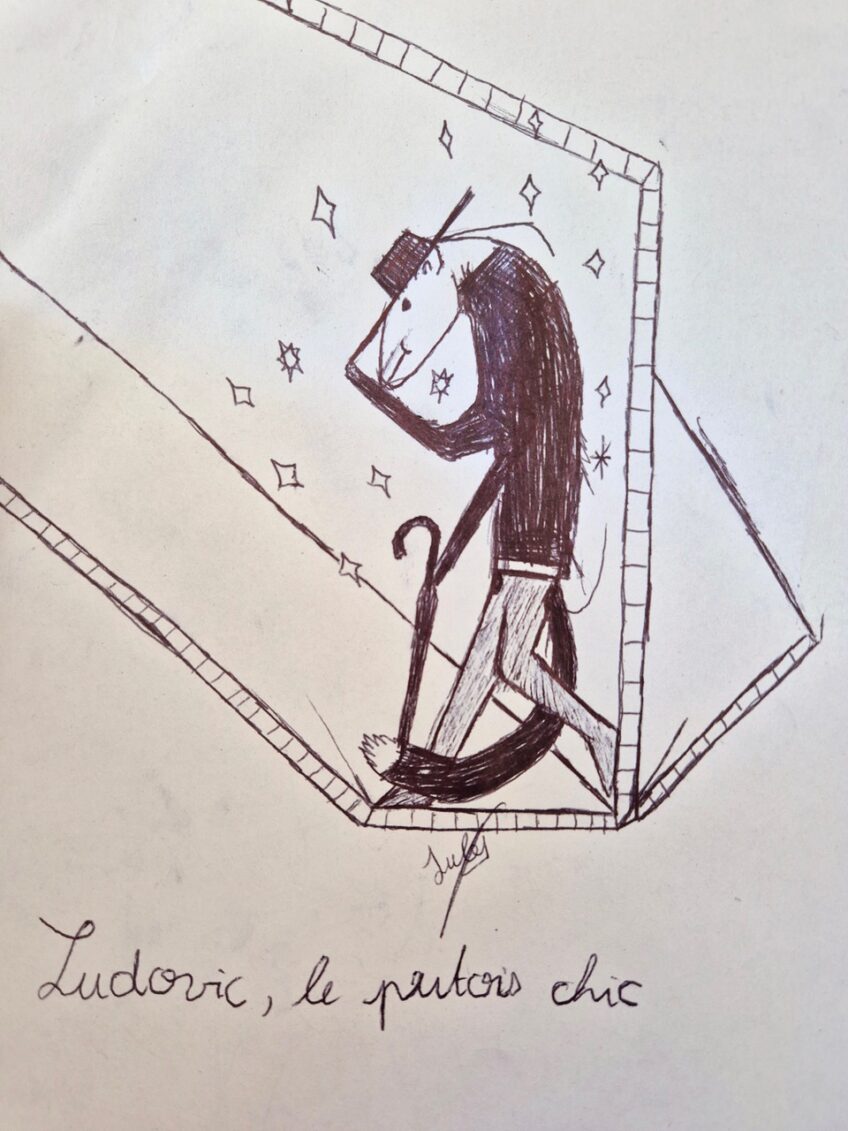 Jules
Ludovic, le putois chic